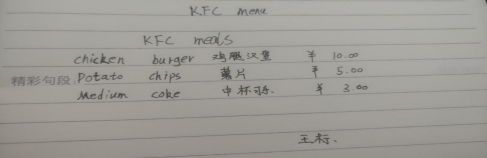 KFC menu
KFC meals
chicken burger 鸡腿汉堡 ¥ 10.00
精彩句段 Potato chips 薯片 ¥ 5.00
Medium coke 中杯可乐. ¥ 3.00